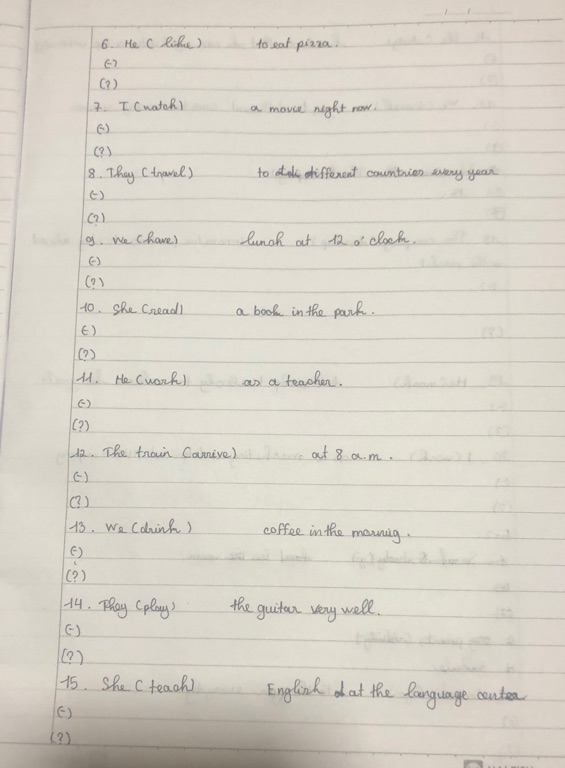 6. He ( like ) to eat pizza.
(-)
(?)
7. I (watch) a movie right now.
(-)
(?)
8. They (travel) to different countries every year
(-)
(?)
9. We (have) lunch at 12 o'clock.
(-)
(?)
10. She (read) a book in the park.
(-)
(?)
11. He (work) as a teacher.
(-)
(?)
12. The train (arrive) at 8 a.m.
(-)
(?)
13. We (drink ) coffee in the mornig.
(-)
(?)
14. They (play) the guitar very well.
(-)
(?)
15. She ( teach) English at the language center
(-)
(?)